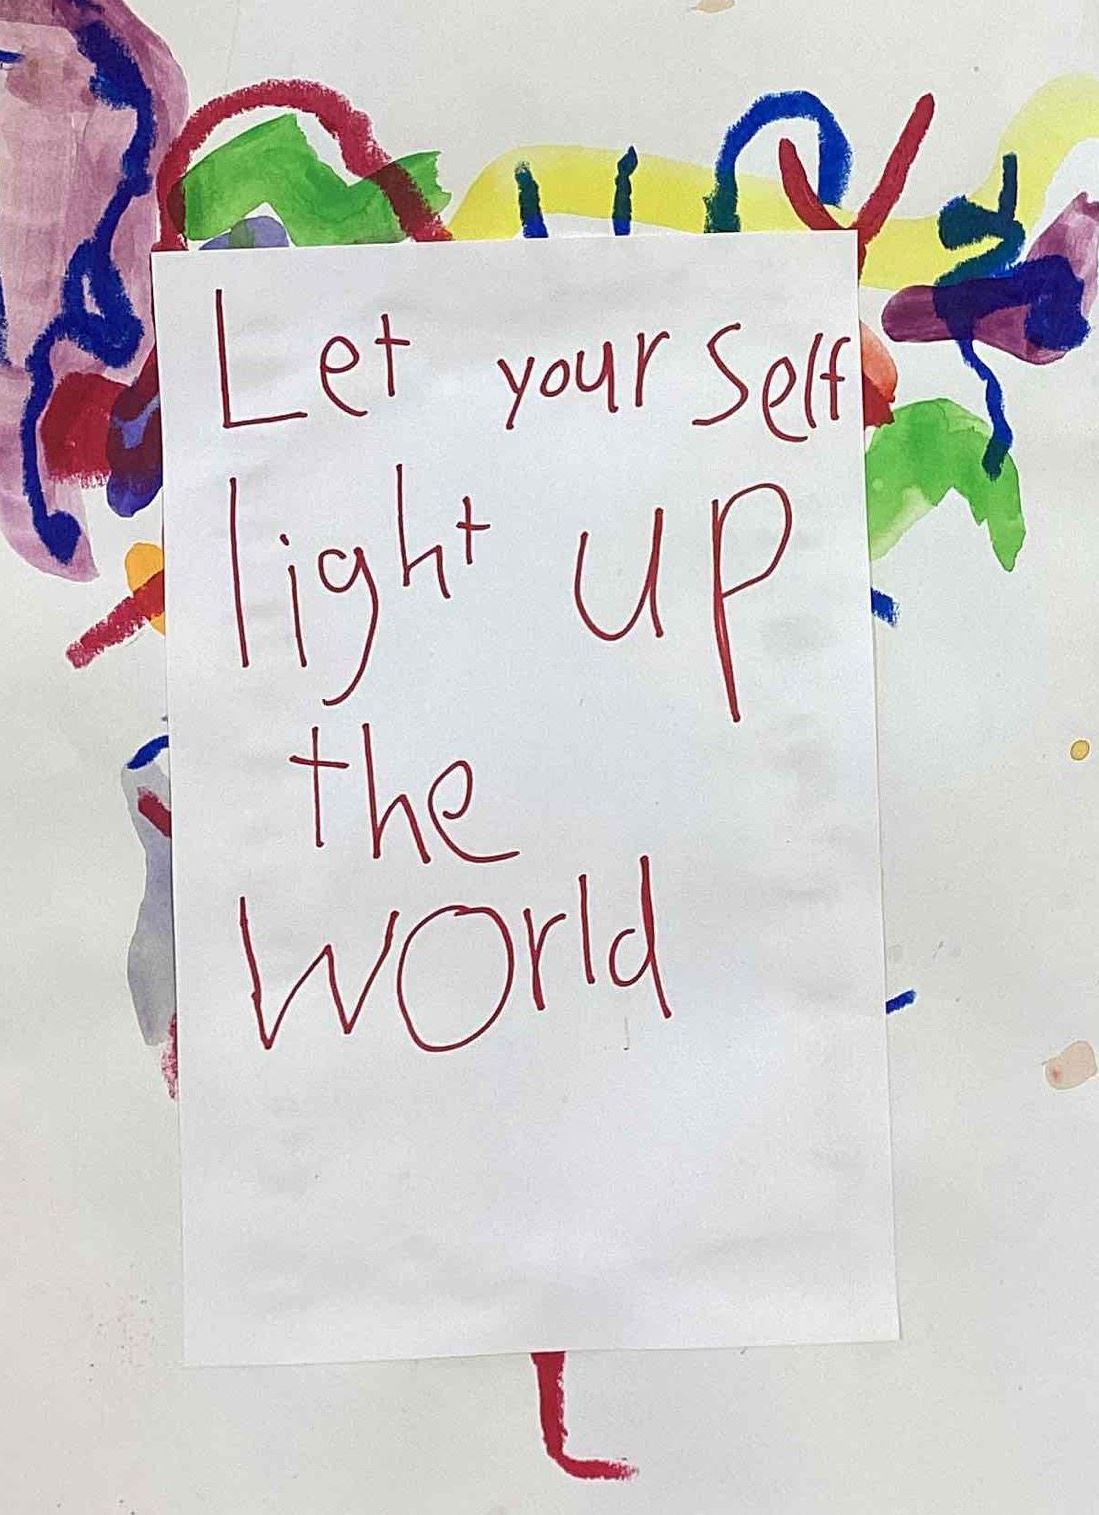 Let your self
light up
the
world